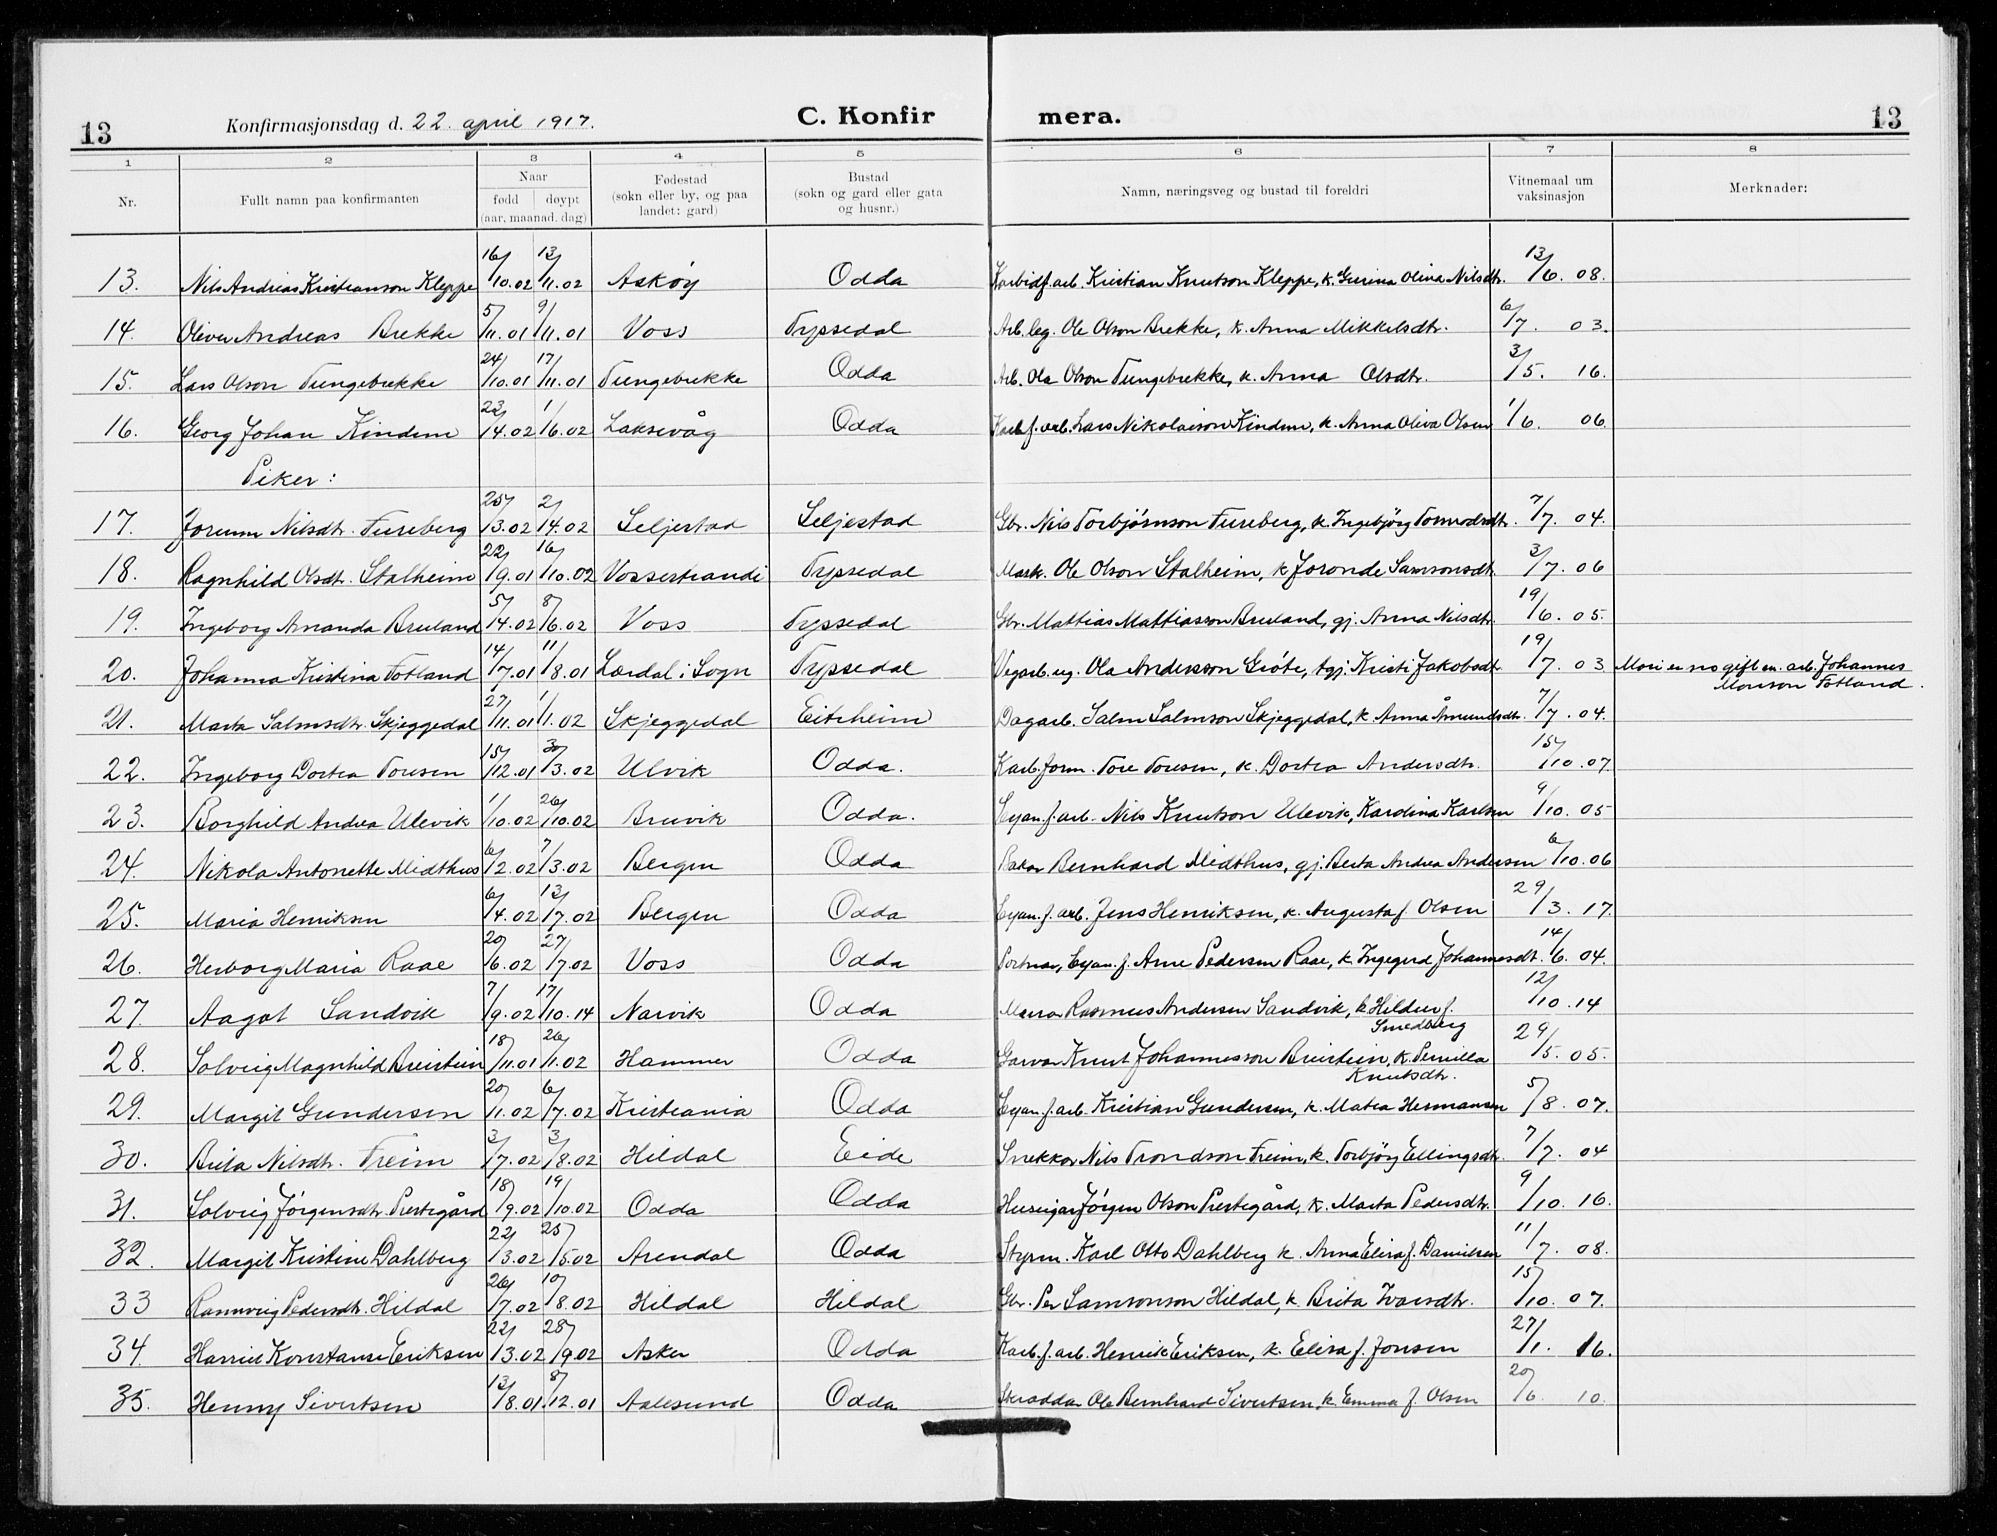 13 Konfirmasjonsdag d. 22. april 1917. C. Konfir mera. 13
1 2 3 4 5 6 7 8
Nr. Fullt namn paa konfirmanten Naar fødd døypt (aar, maanad, dag) Fødestad (sokn eller by, og paa landet: gard) Bustad (sokn og gard eller gata og husnr.) Namn, næringsveg og bustad til foreldri Vitnemaal um vaksinasjon Merknader:
13. Nils Andreas Kristianson Kleppe 16/10.02 13/11.02 Askøy Odda Karbidf. arb. Kristian Knutson Kleppe, k. Gurina Olina Nilsdtr. 13/6. 08.
14. Oliver Andreas Brekke 5/11.01 9/11.01 Voss Tyssedal Arb. leg. Ole Olson Brekke, k. Anna Mikkelsdtr. 6/7. 03.
15. Lars Olson Tungebrekke 24/10.01 17/11.01 Tungebrekke Odda Arb. Ola Olson Tungebrekke, k. Anna Olsdtr. 3/5. 16.
16. Georg Johan Kindem 23/4.02 1/6.02 Laksevåg Odda Karb.f. arb. Lars Nikolaison Kindem, k. Anna Oliva Olsen 1/6. 06.
Piker:
17. Jorunn Nilsdtr. Fureberg 25/3.02 2/4.02 Seljestad Seljestad Gbr. Nils Torbjørnson Fureberg, k. Ingebjörg Tormodsdtr. 7/7. 04.
18. Ragnhild Olsdtr. Stalheim 22/9.01 16/10.02 Vossestrandi Tyssedal Mask. Ole Olson Stalheim, k. Joronde Samsonsdtr. 3/7. 06
19. Ingeborg Amanda Bruland 5/4.02 8/6.02 Voss Tyssedal Gbr. Mattias Mattiasson Bruland, gj. Anna Nilsdtr. 19/6. 05.
20. Johanna Kristina Totland 14/7.01 11/8.01 Lærdal i Sogn Tyssedal Vegarb. ug. Ola Andersson Gröte, tgj. Kristi Jakobsdtr. 19/7. 03 Mori er no gift m. arb. Johannes
Monson Totland.
21. Marta Salmsdtr. Skjeggedal 27/11.01 1/1.02 Skjeggedal Eitrheim Dagarb. Salm Salmson Skjeggedal, k. Anna Åmundsdtr. 7/7. 04.
22. Ingeborg Dortea Toresen 15/12.01 30/3.02 Ulvik Odda. Karb. form. Tore Toresen, k. Dortea Andersdtr. 15/10. 07.
23. Borghild Andrea Ulevik 1/10.02 26/10.02 Bruvik Odda. Cyan. f. arb. Nils Knutson Ulevik, Kardina Karlsen 9/10. 05
24. Nikola Antonette Midthus 6/2.02 7/3.02 Bergen Odda Bakar Bernhard Midthus, gj. Berta Andrea Andersen 6/10. 06
25. Maria Henriksen 6/4.02 13/7.02 Bergen Odda Cyan. f. arb. Jens Henriksen, k. Augusta f. Olsen 29/3. 17.
26. Herborg Maria Raae 20/6.02 27/7.02 Voss Odda Portnar, Cyan. f. Arne Pedersen Raae, k. Ingegerd Johannesdtr. 14/6. 04.
27. Aagot Sandvik 7/9.02 17/10.14 Narvik Odda Murar Rasmus Andersen Sandvik, k. Hildur f. 12/10. 14
Smedberg
28. Solveig Magnhild Breistein 18/11.01 26/1.02 Hammer Odda Garvar Knut Johannesson Breistein, k. Pernilla 29/5. 05.
Knutsdtr.
29. Margit Gundersen 20/1.02 6/7.02 Kristiania Odda Cyan. f. arb. Kristian Gundersen, k. Matea Hermansen 5/8. 07.
30. Brita Nilsdtr. Freim 3/7.02 3/8.02 Hildal Eide Snekkar Nils Trondson Freim, k. Torbjörg Ellingsdtr. 7/7. 04
31. Solveig Jørgensdtr. Prestegård 18/9.02 19/10.02 Odda Odda Huseigar Jørgen Olson Prestegård, k. Marta Pedersdtr. 9/10. 16.
32. Margit Kristine Dahlberg 22/3.02 25/5.02 Arendal Odda Styrm. Karl Otto Dahlberg k. Anna Elisa f. Danielsen 11/7. 08.
33 Rannveig Pedersdtr. Hildal 26/7.02 10/8.02 Hildal Hildal Gbr. Per Samsonson Hildal, k. Brita Ivarsdtr. 15/10. 07.
34. Harriet Konstanse Eriksen 22/3.02 28/9.02 Asker Odda Karb. f. arb. Henrik Eriksen, k. Elisa f. Jonsen 27/1. 16.
35. Henny Sivertsen 13/8.01 8/12.01 Aalesund Odda Skraddar Ole Bernhard Sivertsen, k. Emma f. Olsen 20/6 10.